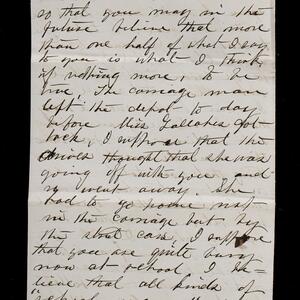 so that you may in the
future believe that more
than one half of what I say
to you is what I think
if nothing more, to be
true, The carriage man
left the depot to day
before Miss Gallahes got
back, I suppose that the
thought that she was
going off with you and
so went away. She
had to go home not
in the carriage but by
the street cars, I suppose
that you are quite busy
now at school, I be-
lieve that all kinds of